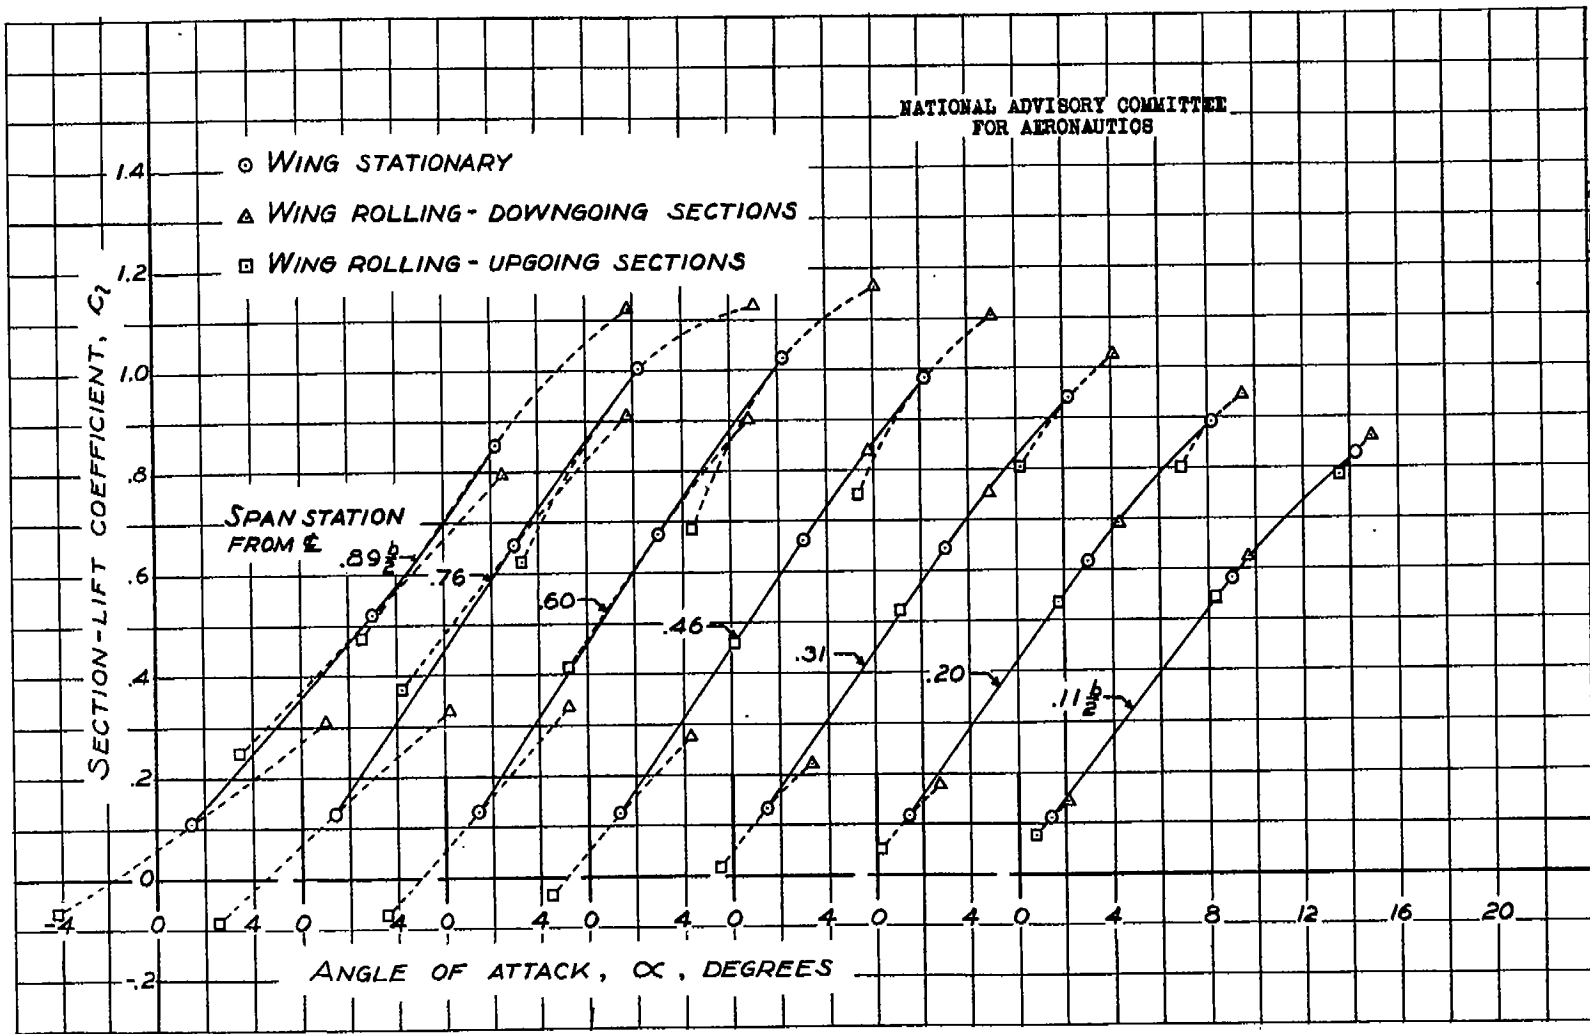 NATIONAL ADVISORY COMMITTEE
FOR AERONAUTICS
⊙ WING STATIONARY
△ WING ROLLING - DOWNGOING SECTIONS
⊡ WING ROLLING - UPGOING SECTIONS
SECTION-LIFT COEFFICIENT, cl
1.4
1.2
1.0
.8
.6
.4
.2
0
-.2
SPAN STATION
FROM ℄
.89 b/2
.76
.60
.46
.31
.20
.11 b/2
-4 0 4 0 4 0 4 0 4 0 4 0 4 0 4 8 12 16 20
ANGLE OF ATTACK, ∝, DEGREES